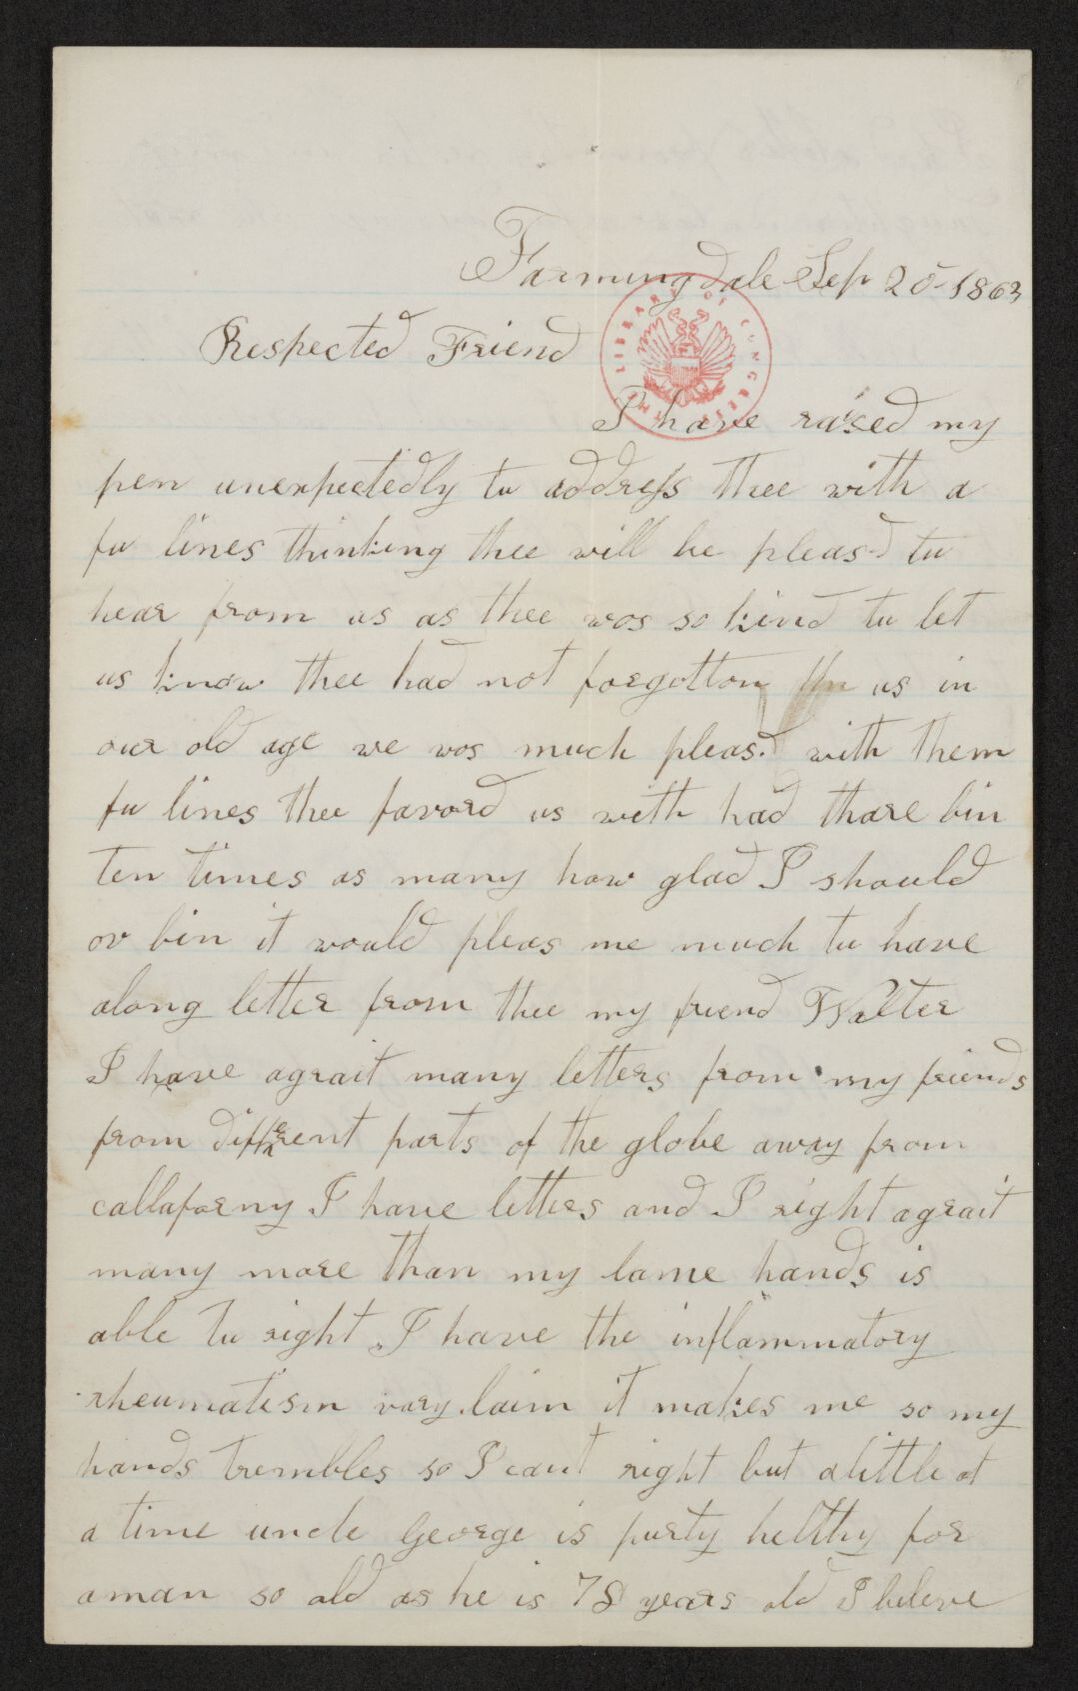 Farmingdale Sep 20 - 1863
Respected Friend
THE LIBRARY OF CONGRESS
I have raised my
pen unexpectedly tu address thee with a
fu lines thinking thee will be pleasd tu
hear from us as thee wos so kind tu let
us know thee had not forgotton us in
our old age we wos much pleas.d with them
fu lines thee favord us with had thare bin
ten times as many how glad I should
ov bin it would pleas me much tu have
along letter from thee my friend Walter
I have agrait many letters from my friends
from different parts of the globe away from
callaforny I have letters and I right agrait
many more than my lame hands is
able tu right I have the inflammatory
rheumatism vary laim it makes me so my
hands trembles so I cant right but alittle at
a time uncle George is purty helthy for
aman so old as he is 78 years old I beleve